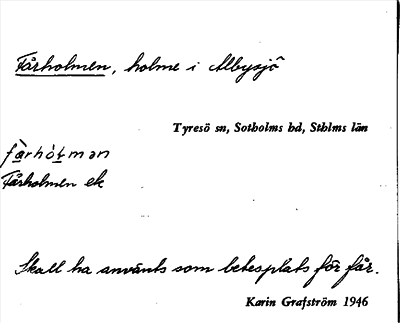 Fårholmen, holme i Albysjö
Tyresö sn, Sotholms hd, Sthlms län
Fårholmen ek
Skall ha använts som betesplats för får.
Karin Grafström 1946